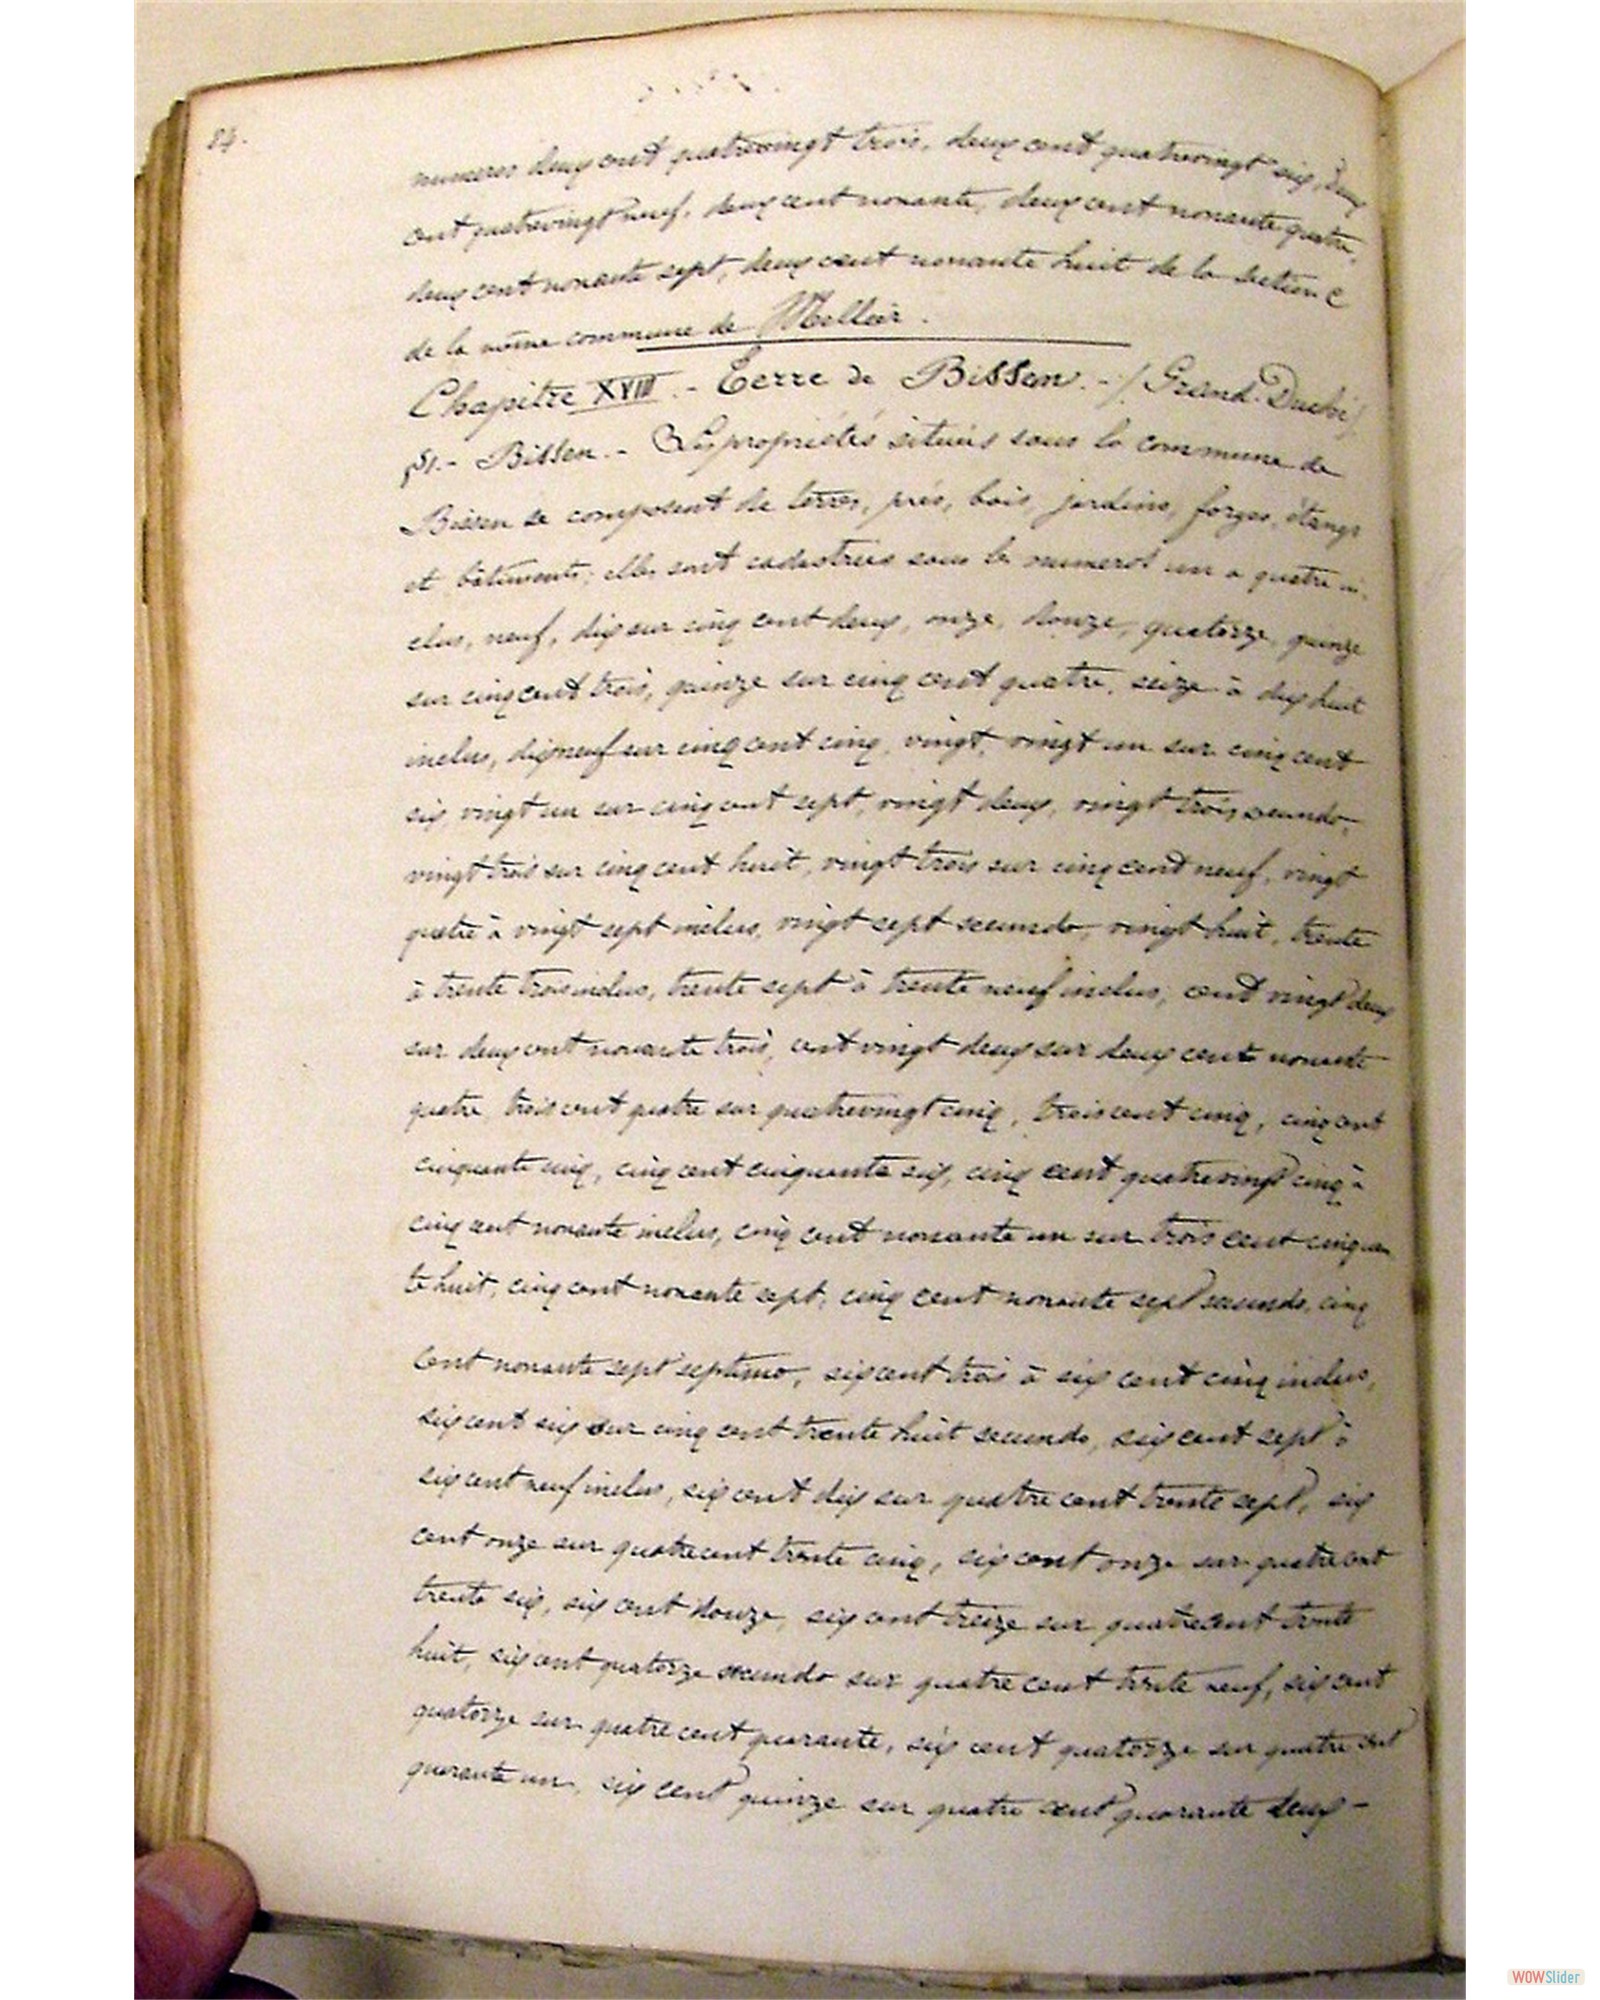 84.
numeros deux cent quatrevingt trois, deux cent quatrevingt six, deux
cent quatrevingt neuf, deux cent nonante, deux cent nonante quatre,
deux cent nonante sept, deux cent nonante huit de la section C
de la même commune de Mellier.
Chapitre XVIII. - Terre de Bissen. - /Grand-Duché/
§1. - Bissen. - Les propriétés situées sous la commune de
Bissen se composent de terres, prés, bois, jardins, forges, étangs
et bâtiments; elles sont cadastrées sous les numeros un a quatre in-
clus, neuf, dix sur cinq cent deux, onze, douze, quatorze, quinze
sur cinq cent trois, quinze sur cinq cent quatre, seize à dix huit
inclus, dix neuf sur cinq cent cinq, vingt, vingt un sur cinq cent
six, vingt un sur cinq cent sept, vingt deux, vingt trois secundo,
vingt trois sur cinq cent huit, vingt trois sur cinq cent neuf, vingt
quatre à vingt sept inclus, vingt sept secundo, vingt huit, trente
à trente trois inclus, trente sept à trente neuf inclus, cent vingt deux
sur deux cent nonante trois, cent vingt deux sur deux cent nonante
quatre, trois cent quatre sur quatrevingt cinq, trois cent cinq, cinq cent
cinquante cinq, cinq cent cinquante six, cinq cent quatrevingt cinq à
cinq cent nonante inclus, cinq cent nonante un sur trois cent cinquan
te huit, cinq cent nonante sept, cinq cent nonante sept secundo, cinq
cent nonante sept septimo, six cent trois à six cent cinq inclus,
six cent six sur cinq cent trente huit secundo, six cent sept à
six cent neuf inclus, six cent dix sur quatre cent trente sept, six
cent onze sur quatre cent trente cinq, six cent onze sur quatre cent
trente six, six cent douze, six cent treize sur quatre cent trente
huit, six cent quatorze secundo sur quatre cent trente neuf, six cent
quatorze sur quatre cent quarante, six cent quatorze sur quatre cent
quarante un, six cent quinze sur quatre cent quarante deux -
WOWSlider